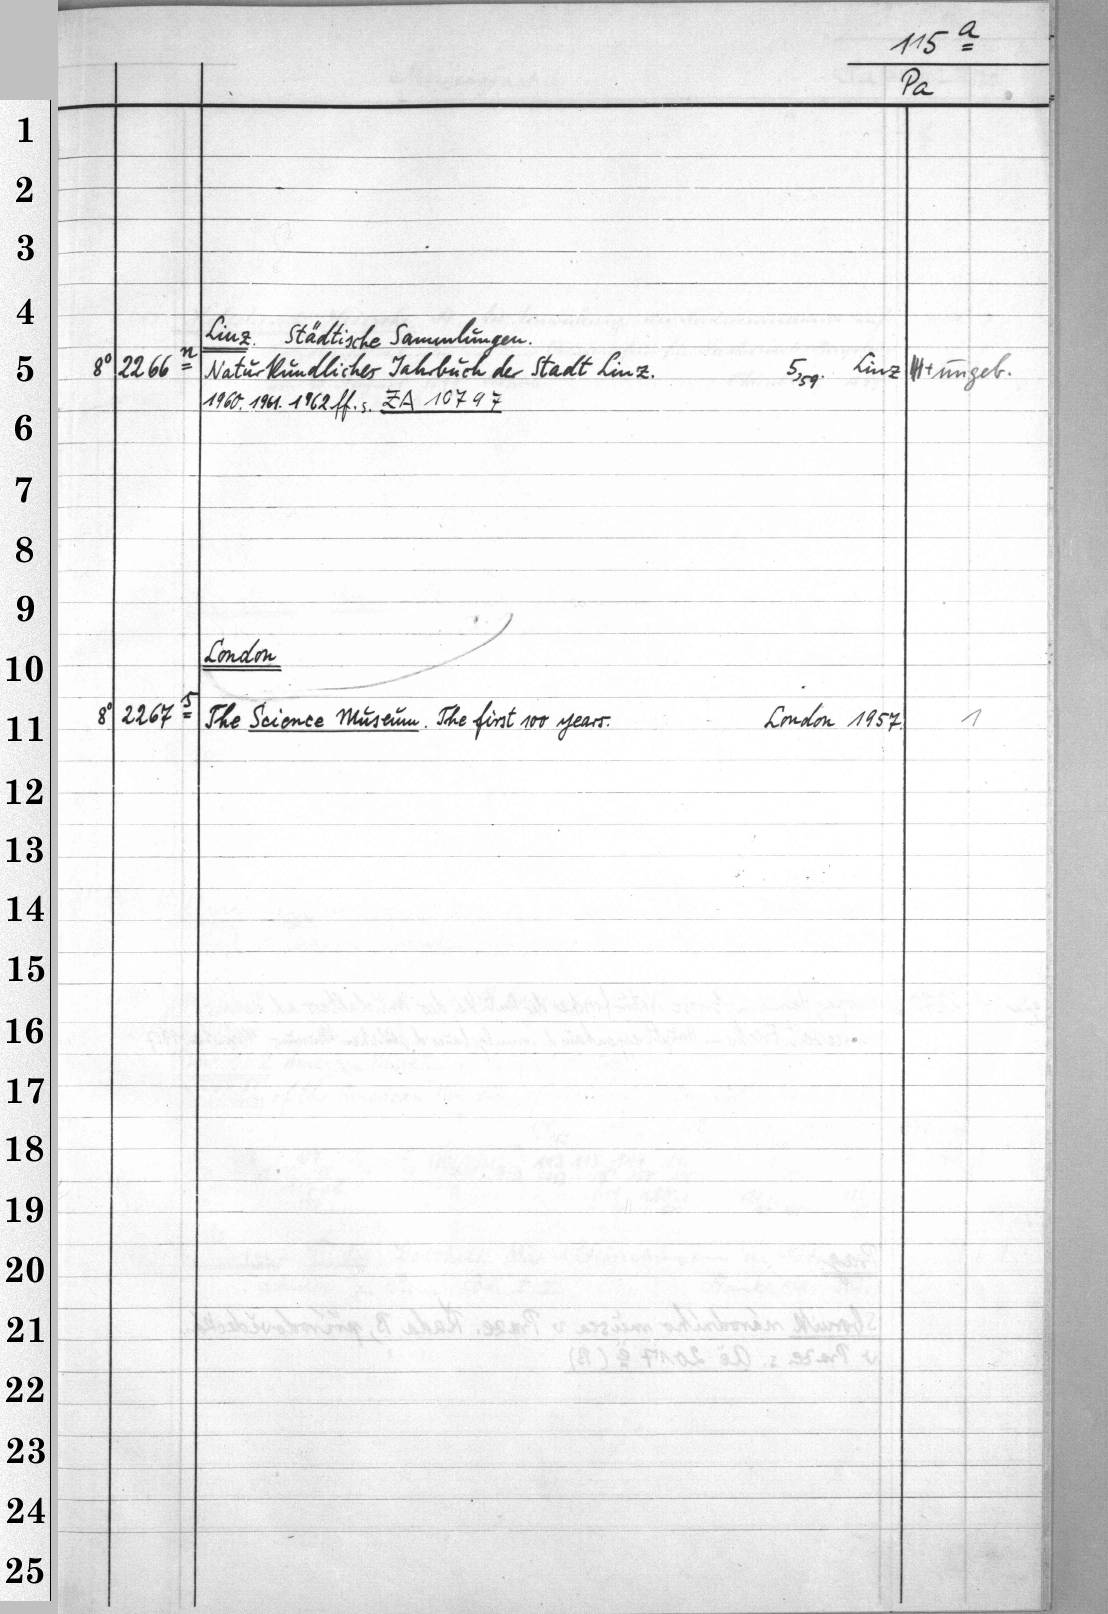 115 a
Pa
1
2
3
4
Linz. Städtische Sammlungen.
5 8° 2266 n Naturkundliches Jahrbuch der Stadt Linz. 5,59. Linz + ungeb.
1960. 1961. 1962 ff. s. ZA 10797
6
7
8
9
London
10
11 8° 2267 s The Science Museum. The first 100 years. London 1957. 1
12
13
14
15
16
17
18
19
20
21
22
23
24
25